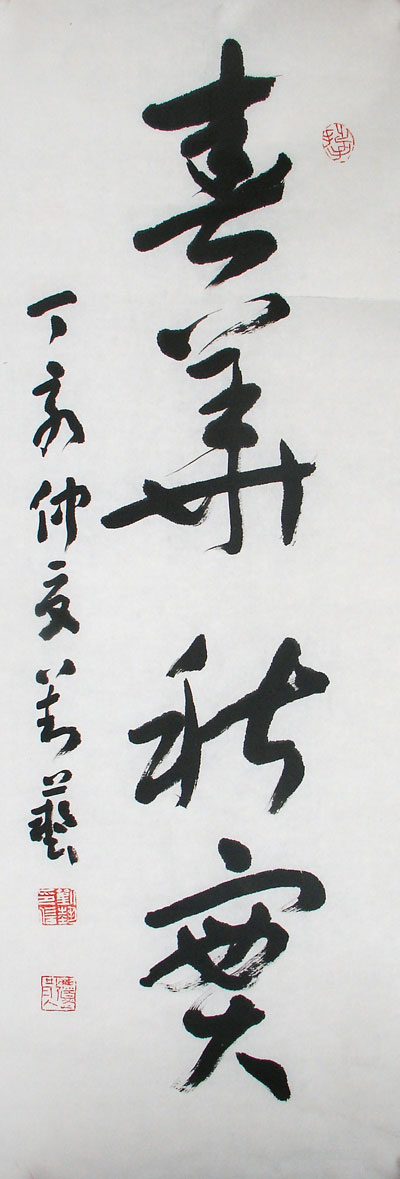 春華秋實
丁亥仲夏 藝